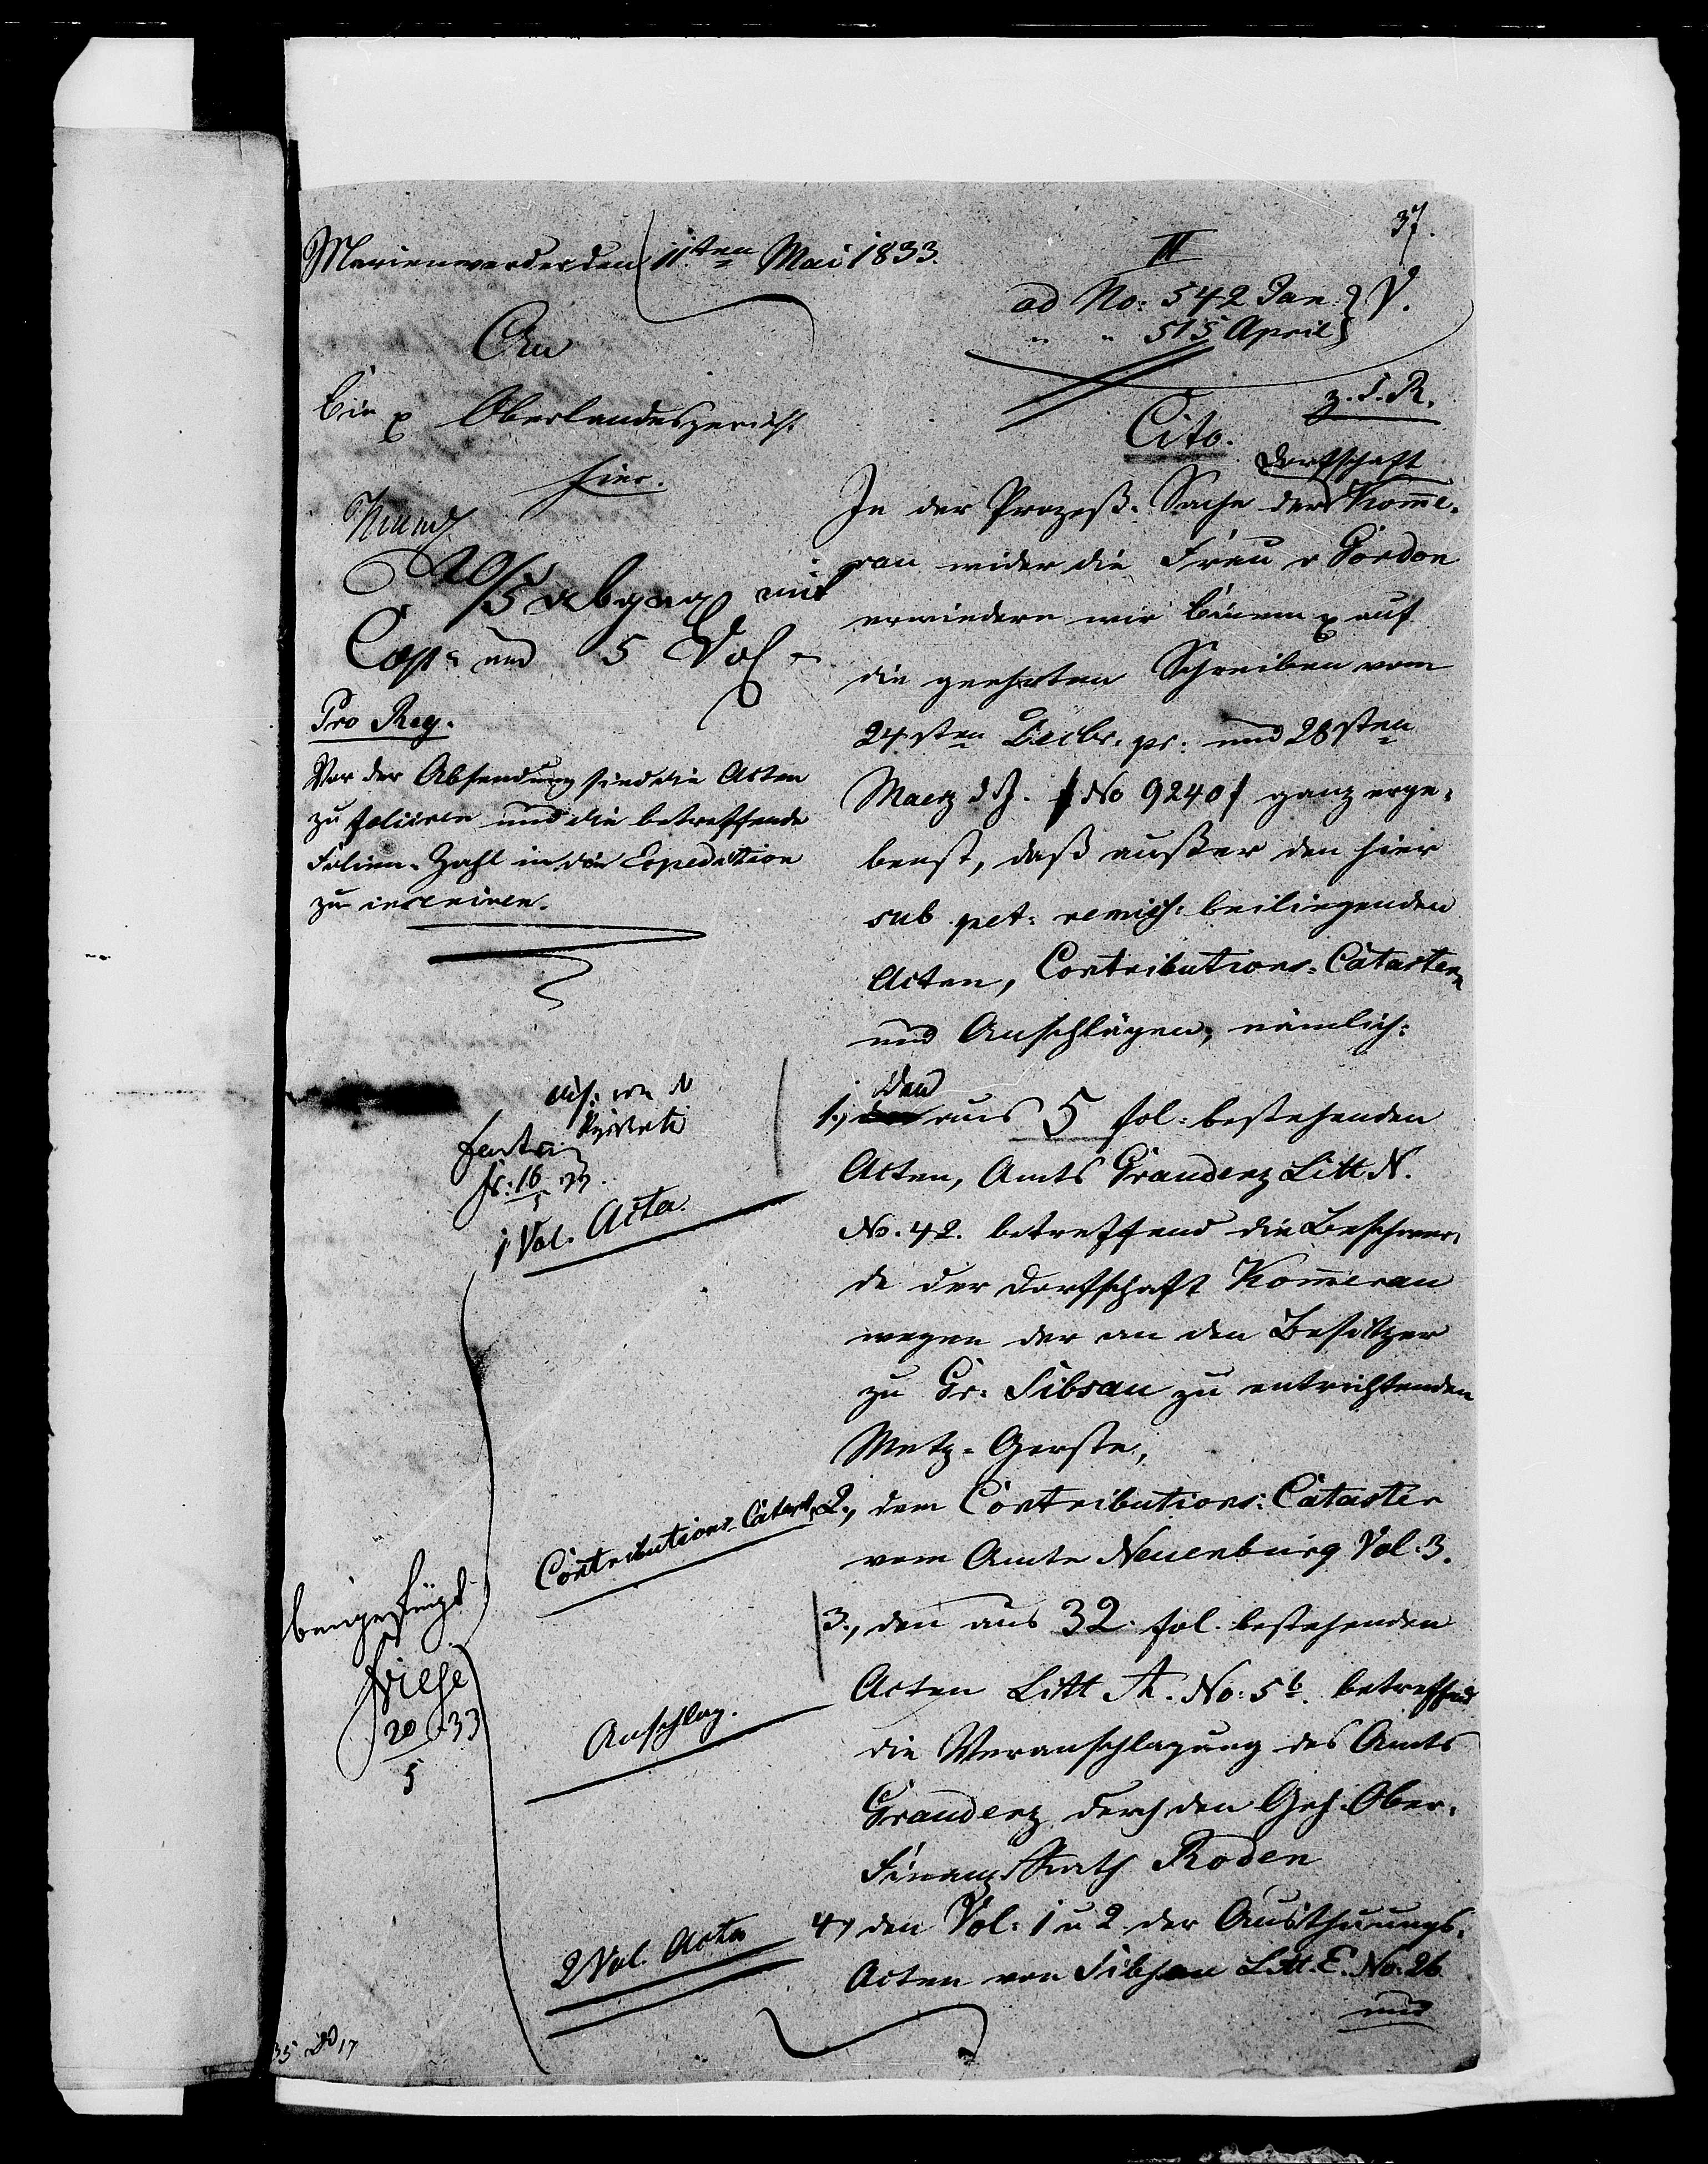 37.
Marienwerder den 11ten Mai 1833.
II
ad No: 542 Jan. } V.
" " 515 April }
An
Ein p Oberlandesgericht
hier.
z. S. R.
Cito.
20/5 abgeg mit
Cop: und 5 Vol
Pro Reg.
Vor der Absendung sind die Acten
zu foliiren und die betreffende
Folien-Zahl in die Expedition
zu inseriren.
Dorfschaft
In der Prozeß-Sache der Komme-
rau wider die Frau v Gordon
erwiedern wir Einem p auf
die geehrten Schreiben vom
24sten Decbr. pr: und 28sten
Maerz d J. /No 9240/ ganz erge-
benst, daß außer den hier
sub pet: remiss: beiliegenden
Acten, Contributions-Cataster
und Anschlägen, nämlich:
den
1., aus 5 fol: bestehenden
Acten, Amts Graudenz Litt N.
No. 42. betreffend die Beschwer-
de der Dorfschaft Kommerau
wegen der an den Besitzer
zu Gr. Sibsau zu entrichtenden
Metz-Gerste,
2., dem Contributions-Cataster
vom Amte Neuenburg Vol. 3.
3., den aus 32 fol. bestehenden
Acten Litt A. No: 5b. betreffend
die Veranschlagung des Amts
Graudenz durch den Geh. Ober-
Finanz Rath Roden
4, den Vol: 1 u 2 der Austhuungs-
Acten von Sibsau Litt. E. No. 26
und
1 Vol. Acta.
Contributions-Catast.
Anschlag.
2 Vol. Acta
beigefügt
20/5 33